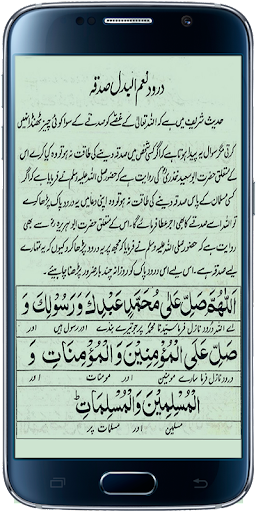 درود نعم البدل صدقہ
حدیث شریف میں ہے کہ اللہ تعالیٰ کے غصے کو صدقے کے سوا کوئی چیز ٹھنڈا نہیں
کرتی مگر سوال یہ پیدا ہوتا ہے کہ اگر کسی شخص میں صدقہ دینے کی طاقت نہ ہو تو وہ کیا کرے اس
کے متعلق حضرت ابو سعید خدری کی روایت ہے کہ حضور صلی اللہ علیہ وسلم نے فرمایا ہے کہ اگر
کسی مسلمان کے پاس صدقہ دینے کی طاقت نہ ہو تو وہ اپنی دعا میں یہ درود پاک پڑھا کرے
تو اللہ اسے صدقے کا بھی اجر عطا فرمائے گا۔ اس کے متعلق حضرت ابو ہریرہ سے بھی
روایت ہے کہ حضور صلی اللہ علیہ وسلم نے فرمایا کہ مجھ پر یہ درود پاک پڑھا کرو کیوں کہ یہ تمہارے
لیے صدقہ ہے۔ اس لیے اس درود پاک کو روزانہ چند بار ضرور پڑھنا چاہیئے۔
اَللّٰهُمَّ صَلِّ عَلٰى مُحَمَّدٍ عَبْدِكَ وَرَسُوْلِكَ وَ
اے اللہ درود نازل فرما سیدنا محمد پر جو تیرے بندے اور رسول ہیں اور
صَلِّ عَلَى الْمُؤْمِنِيْنَ وَالْمُؤْمِنَاتِ وَ
درود نازل فرما سارے مومنین اور مومنات اور
الْمُسْلِمِيْنَ وَالْمُسْلِمَاتِ ط
مسلمین اور مسلمات پر